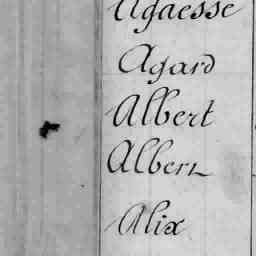 Agaesse
Agard
Albert
Albert
Alix